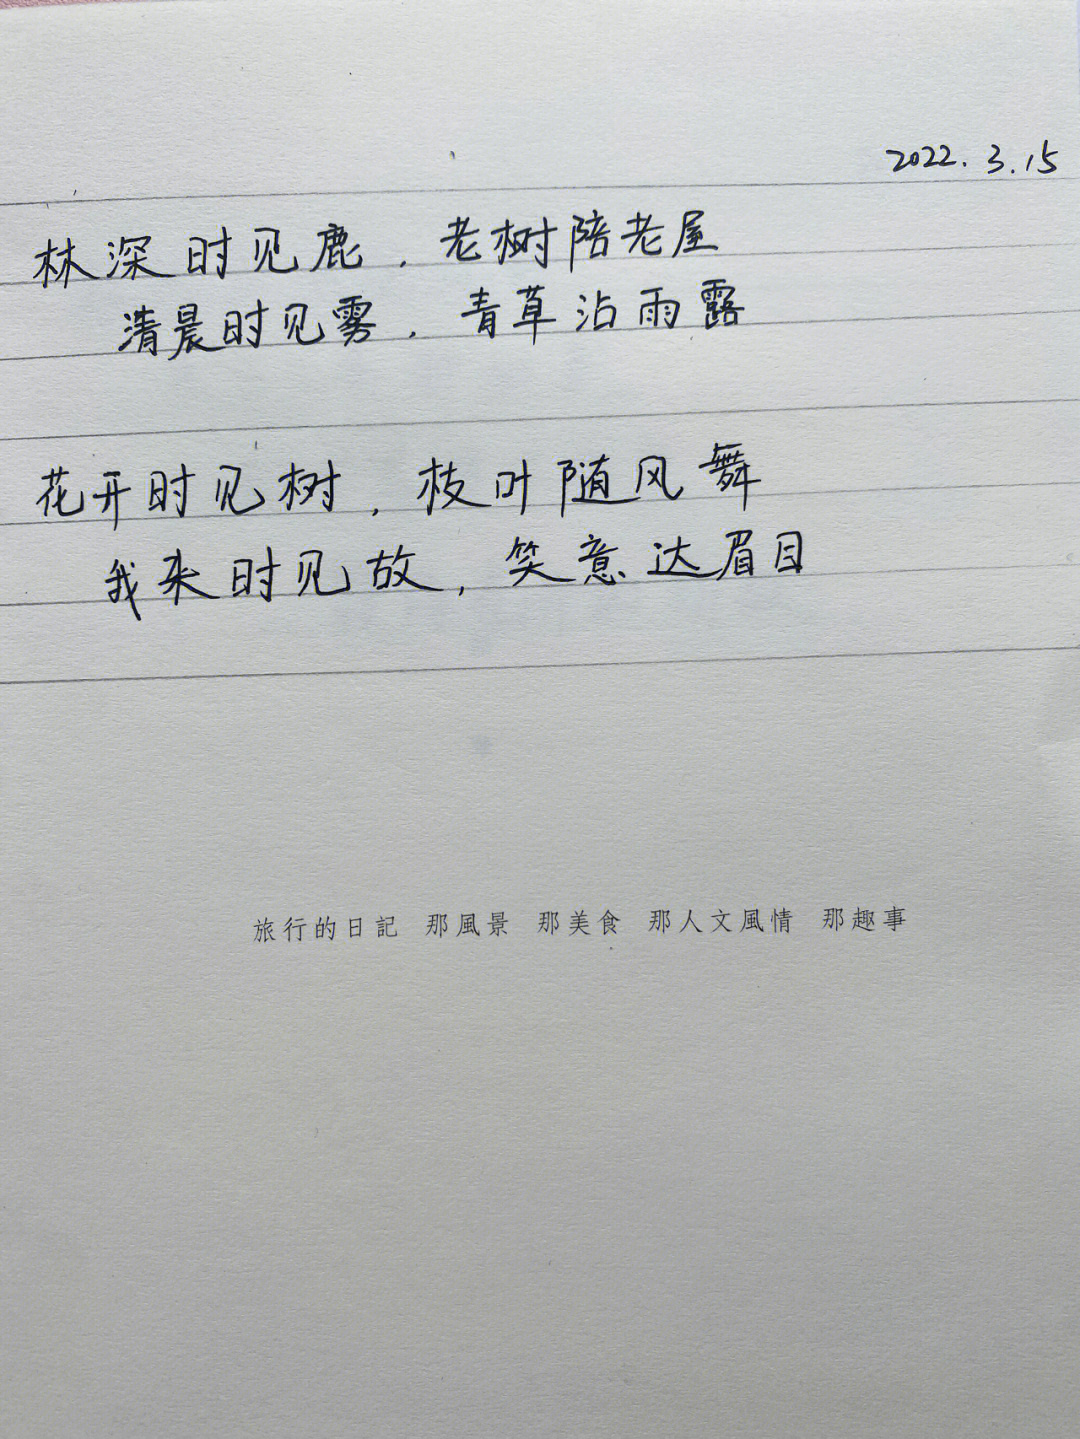 2022.3.15
林深时见鹿,老树陪老屋
清晨时见雾,青草沾雨露
花开时见树,枝叶随风舞
我来时见故,笑意达眉目
旅行的日記 那風景 那美食 那人文風情 那趣事